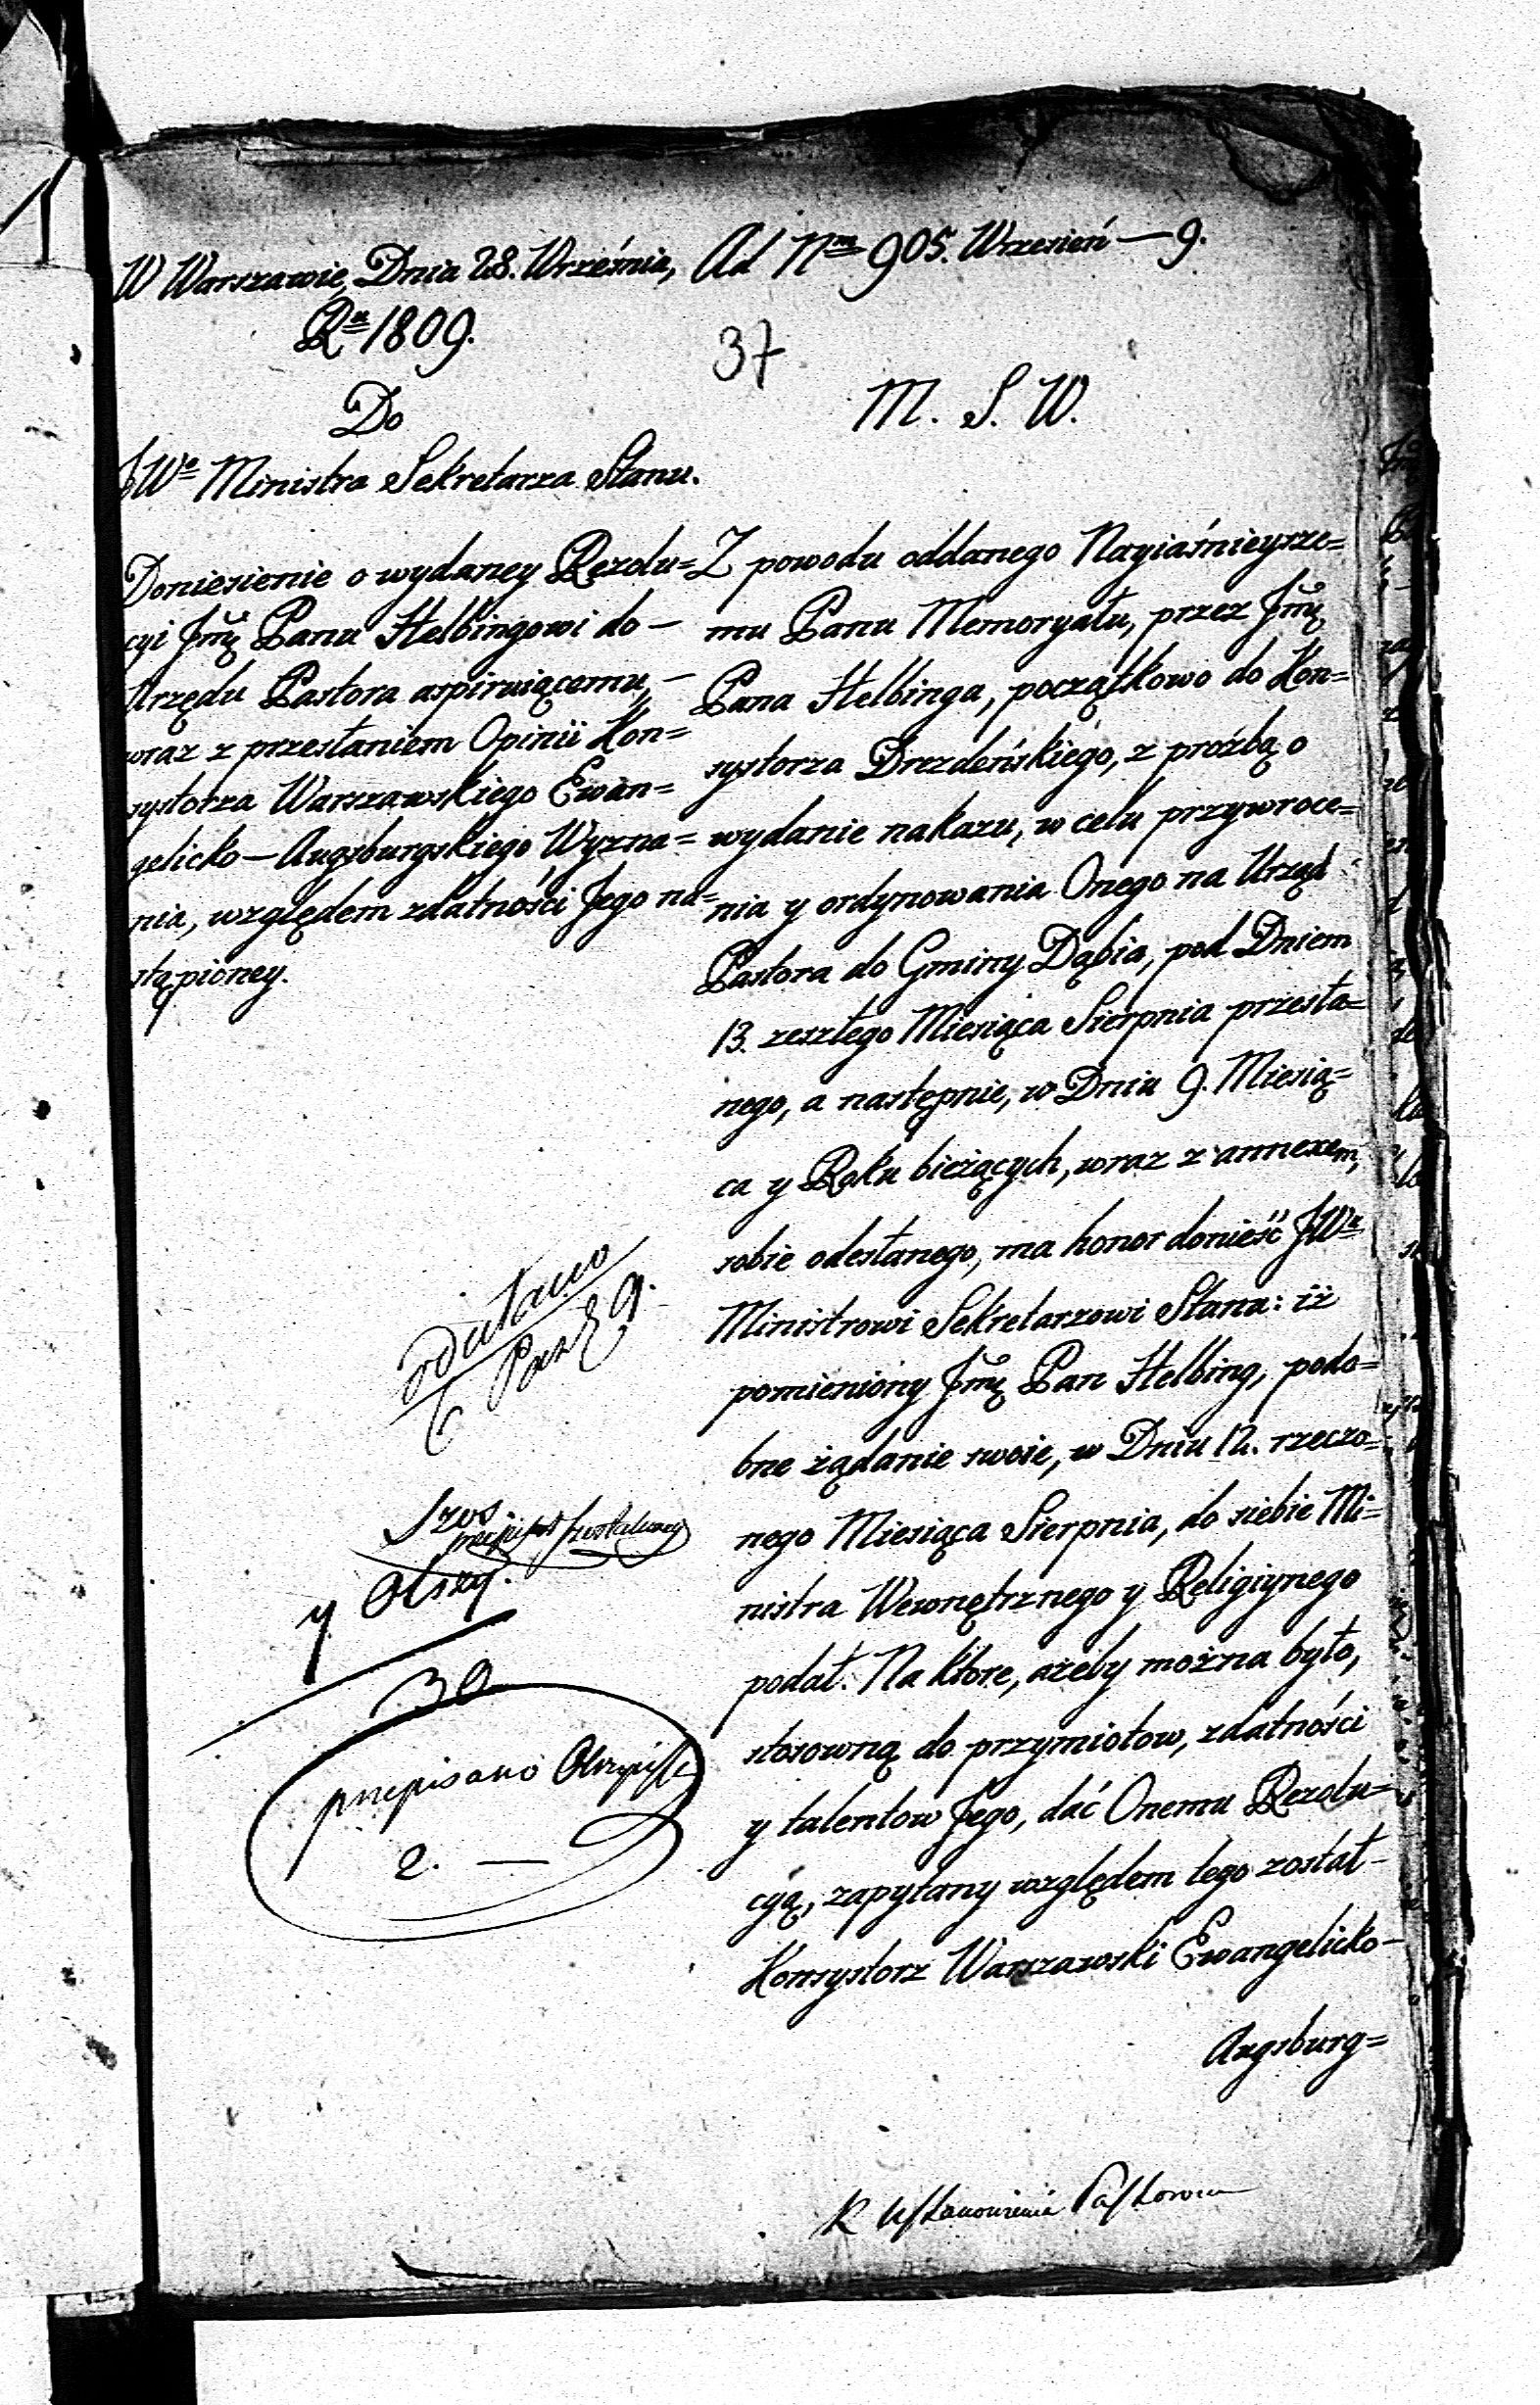 W Warszawie, Dnia 28. Września,
Rᵘ 1809.
Do
JWᵒ Ministra Sekretarza Stanu.
Doniesienie o wydaney Rezolu=
cyi Jmę Panu Helbingowi do —
Urzędu Pastora aspiruiącemu, —
wraz z przesłaniem Opinii Kon=
systorza Warszawskiego Ewan=
gelicko — Augsburgskiego Wyzna=
nia, względem zdatności Jego na=
stąpioney.
Ad Nᵐ 905. Wrzesień — 9.
37
M. S. W.
Z powodu oddanego Nayiaśnieysze=
mu Panu Memoryału, przez Jmę
Pana Helbinga, początkowo do Kon=
systorza Drezdeńskiego, z proźbą o
wydanie nakazu, w celu przywroce=
nia y ordynowania Onego na Urząd
Pastora do Gminy Dąbia, pod Dniem
13. zeszłego Miesiąca Sierpnia przesła=
nego, a następnie, w Dniu 9. Miesią=
ca y Roku bieżących, wraz z annexem,
sobie odesłanego, ma honor donieść JWᵘ
Ministrowi Sekretarzowi Stanu: iż
pomieniony Jmę Pan Helbing, podo=
bne żądanie swoie, w Dniu 12. rzeczo=
nego Miesiąca Sierpnia, do siebie Mi=
nistra Wewnętrznego y Religiynego
podał. Na ktore, ażeby można było,
stosowną do przymiotow, zdatności
y talentow Jego, dać Onemu Rezolu=
cyą, zapytany względem tego został —
Konsystorz Warszawski Ewangelicko —
Augsburg=
30
przepisano
2. —
R Ustanowienia Pastorow